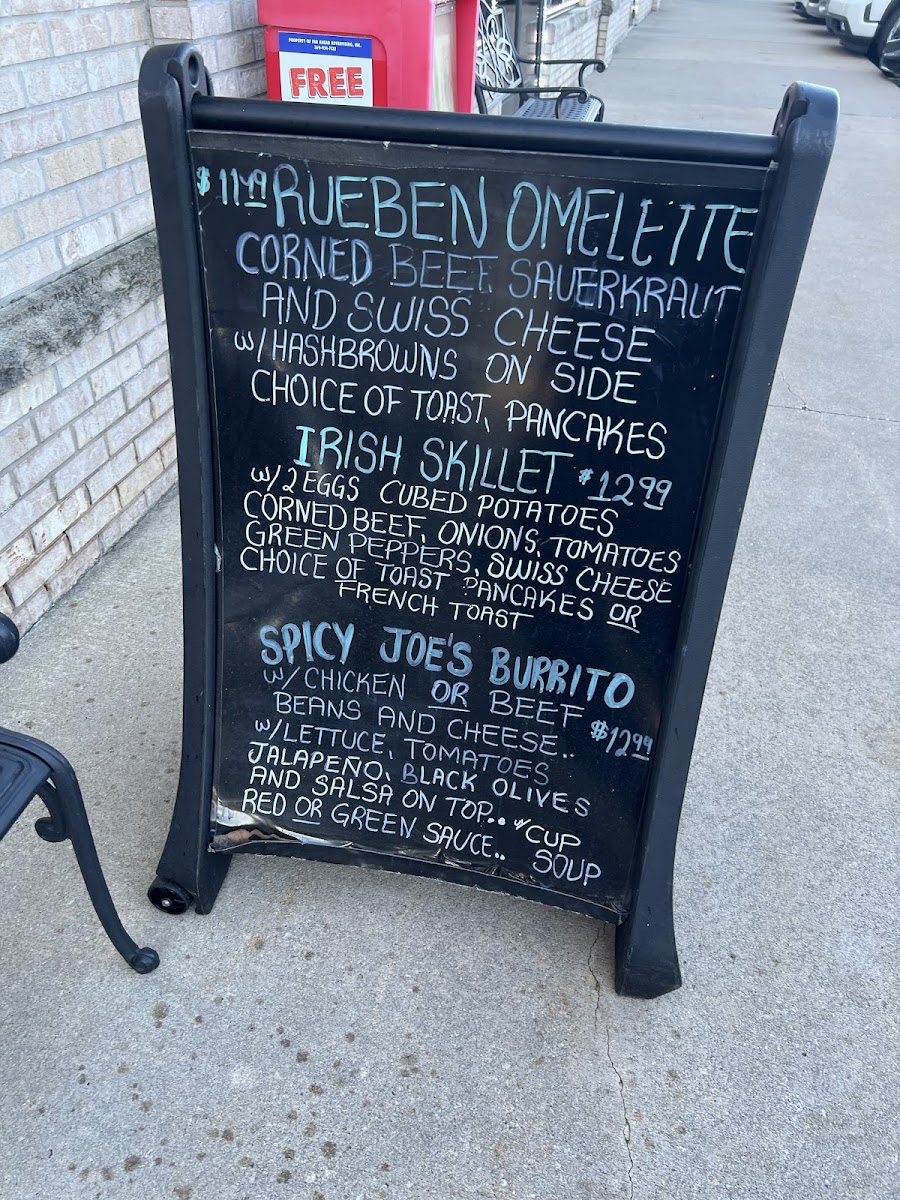 PROPERTY OF FAR AHEAD ADVERTISING, INC.
FREE
$11.49 RUEBEN OMELETTE
CORNED BEEF, SAUERKRAUT
AND SWISS CHEESE
w/HASHBROWNS ON SIDE
CHOICE OF TOAST, PANCAKES
IRISH SKILLET $12.99
w/2 EGGS CUBED POTATOES
CORNED BEEF, ONIONS, TOMATOES
GREEN PEPPERS, SWISS CHEESE
CHOICE OF TOAST PANCAKES OR
FRENCH TOAST
SPICY JOE'S BURRITO
w/CHICKEN OR BEEF
BEANS AND CHEESE.. $12.99
w/LETTUCE, TOMATOES
JALAPEÑO, BLACK OLIVES
AND SALSA ON TOP.. w/CUP
RED OR GREEN SAUCE.. SOUP